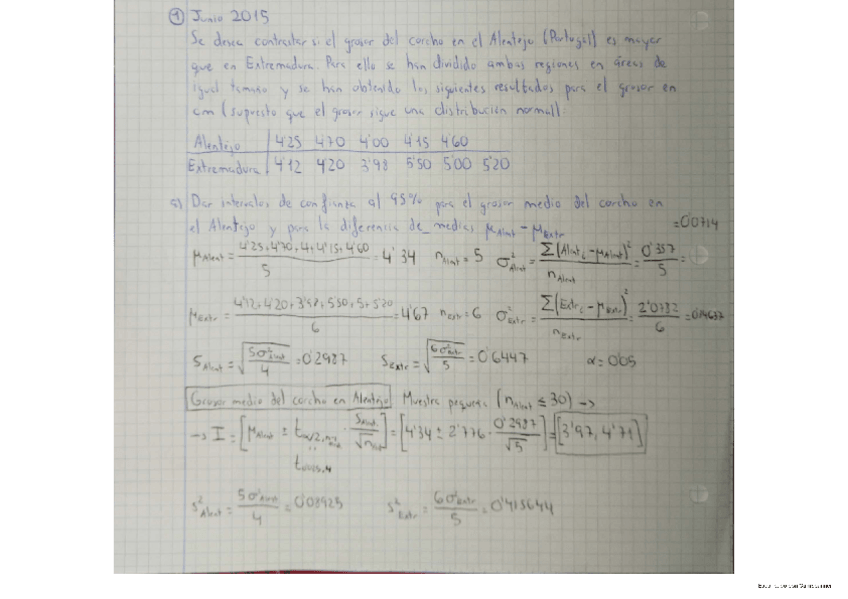 ① Junio 2015
Se desea contrastar si el grosor del corcho en el Alentejo (Portugal) es mayor
que en Extremadura. Para ello se han dividido ambas regiones en áreas de
igual tamaño y se han obtenido los siguientes resultados para el grosor en
cm (supuesto que el grosor sigue una distribución normal).
Alentejo | 4'25 4'70 4'00 4'15 4'60
Extremadura | 4'12 4'20 3'98 5'50 5'00 5'20
a) Dar intervalos de confianza al 95% para el grosor medio del corcho en
el Alentejo y para la diferencia de medias μAlent - μExtr
μAlent = (4'25+4'70+4+4'15+4'60)/5 = 4'34 nAlent = 5 σ²Alent = Σ(Alent_i - μAlent)²/nAlent = 0'357/5 = =0'0714
μExtr = (4'12+4'20+3'98+5'50+5+5'20)/6 = 4'67 nExtr = 6 σ²Extr = Σ(Extr_i - μExtr)²/nExtr = /6 =
SAlent = √(5σ²Alent/4) = 0'2987 SExtr = √(6σ²Extr/5) = 0'6447 α = 0'05
Grosor medio del corcho en Alentejo Muestra pequeña (nAlent ≤ 30) →
→ I = [μAlent ± tα/2, · SAlent/√nAlent] = [4'34 ± 2'776 · 0'2987/√5] = [3'97, 4'71]
t0'025,4
s²Alent = 5σ²Alent/4 = 0'08925 s²Extr = 6σ²Extr/5 =